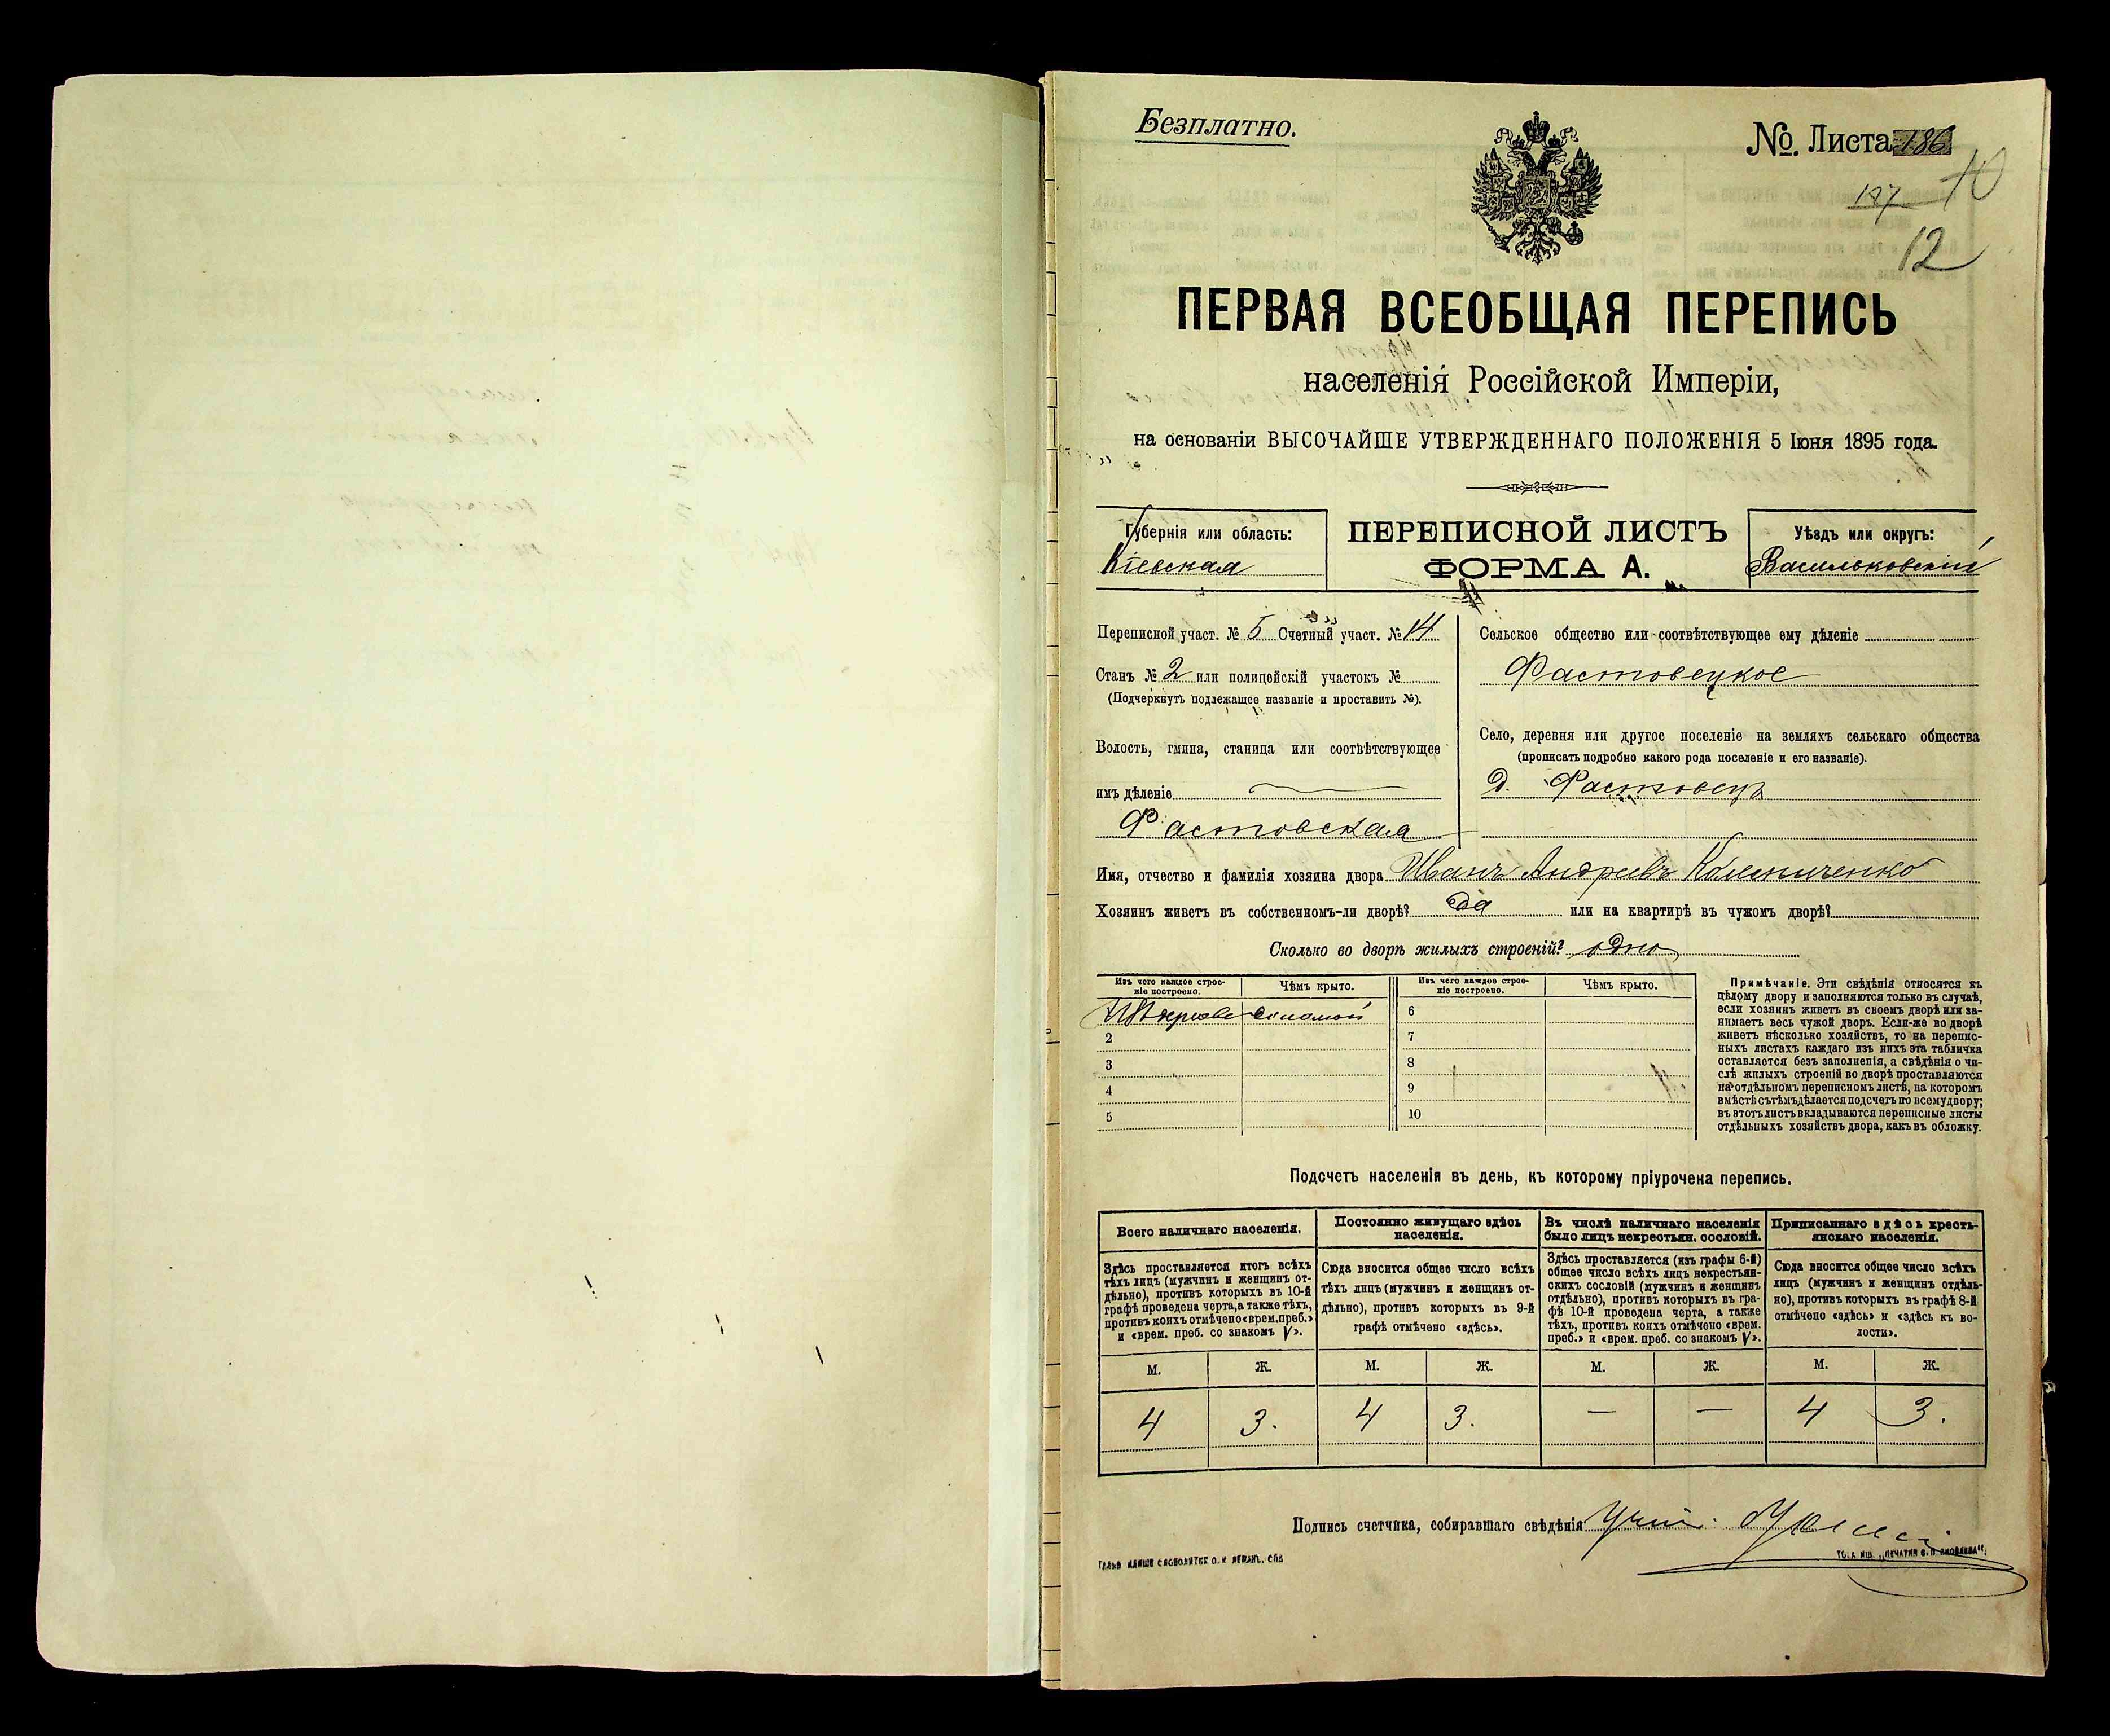 Безплатно.
№. Листа 186
187 10
12
ПЕРВАЯ ВСЕОБЩАЯ ПЕРЕПИСЬ
населенія Россійской Имперіи,
на основаніи ВЫСОЧАЙШЕ УТВЕРЖДЕННАГО ПОЛОЖЕНІЯ 5 Іюня 1895 года.
Губернія или область:
Кіевская
ПЕРЕПИСНОЙ ЛИСТЪ
ФОРМА А.
Уѣздъ или округъ:
Васильковскій
Переписной участ. № 5 Счетный участ. № 14
Станъ № 2 или полицейскій участокъ №
(Подчеркнуть подлежащее названіе и проставить №).
Волость, гмина, станица или соотвѣтствующее
имъ дѣленіе
Фастовская
Сельское общество или соотвѣтствующее ему дѣленіе
Фастовецкое
Село, деревня или другое поселеніе на земляхъ сельскаго общества
(прописать подробно какого рода поселеніе и его названіе).
Д. Фастовець
Имя, отчество и фамилія хозяина двора Иванъ Андреевъ Колениченко
Хозяинъ живетъ въ собственномъ-ли дворѣ? да или на квартирѣ въ чужомъ дворѣ?
Сколько во дворѣ жилыхъ строеній? одно
Изъ чего каждое строеніе построено.
Чѣмъ крыто.
Изъ чего каждое строеніе построено.
Чѣмъ крыто.
соломой
6
2
7
3
8
4
9
5
10
Примѣчаніе. Эти свѣдѣнія относятся къ
цѣлому двору и заполняются только въ случаѣ,
если хозяинъ живетъ въ своемъ дворѣ или за-
нимаетъ весь чужой дворъ. Если-же во дворѣ
живетъ нѣсколько хозяйствъ, то на перепис-
ныхъ листахъ каждаго изъ нихъ эта табличка
оставляется безъ заполненія, а свѣдѣнія о чи-
слѣ жилыхъ строеній во дворѣ проставляются
на отдѣльномъ переписномъ листѣ, на которомъ
вмѣстѣ съ тѣмъ дѣлается подсчетъ по всему двору;
въ этотъ листъ вкладываются переписные листы
отдѣльныхъ хозяйствъ двора, какъ въ обложку.
Подсчетъ населенія въ день, къ которому пріурочена перепись.
Всего наличнаго населенія.
Постоянно живущаго здѣсь
населенія.
Въ числѣ наличнаго населенія
было лицъ некрестьян. сословій.
Приписаннаго здѣсь кресть-
янскаго населенія.
Здѣсь проставляется итогъ всѣхъ
тѣхъ лицъ (мужчинъ и женщинъ от-
дѣльно), противъ которыхъ въ 10-й
графѣ проведена черта, а также тѣхъ,
противъ коихъ отмѣчено «врем. преб.»
и «врем. преб. со знакомъ V».
Сюда вносится общее число всѣхъ
тѣхъ лицъ (мужчинъ и женщинъ от-
дѣльно), противъ которыхъ въ 9-й
графѣ отмѣчено «здѣсь».
Здѣсь проставляется (изъ графы 6-й)
общее число всѣхъ лицъ некрестьян-
скихъ сословій (мужчинъ и женщинъ
отдѣльно), противъ которыхъ въ гра-
фѣ 10-й проведена черта, а также
тѣхъ, противъ коихъ отмѣчено «врем.
преб.» и «врем. преб. со знакомъ V».
Сюда вносится общее число всѣхъ
лицъ (мужчинъ и женщинъ отдѣль-
но), противъ которыхъ въ графѣ 8-й
отмѣчено «здѣсь» и «здѣсь къ во-
лости».
М. Ж. М. Ж. М. Ж. М. Ж.
4 3. 4 3. — — 4 3.
Подпись счетчика, собиравшаго свѣдѣнія